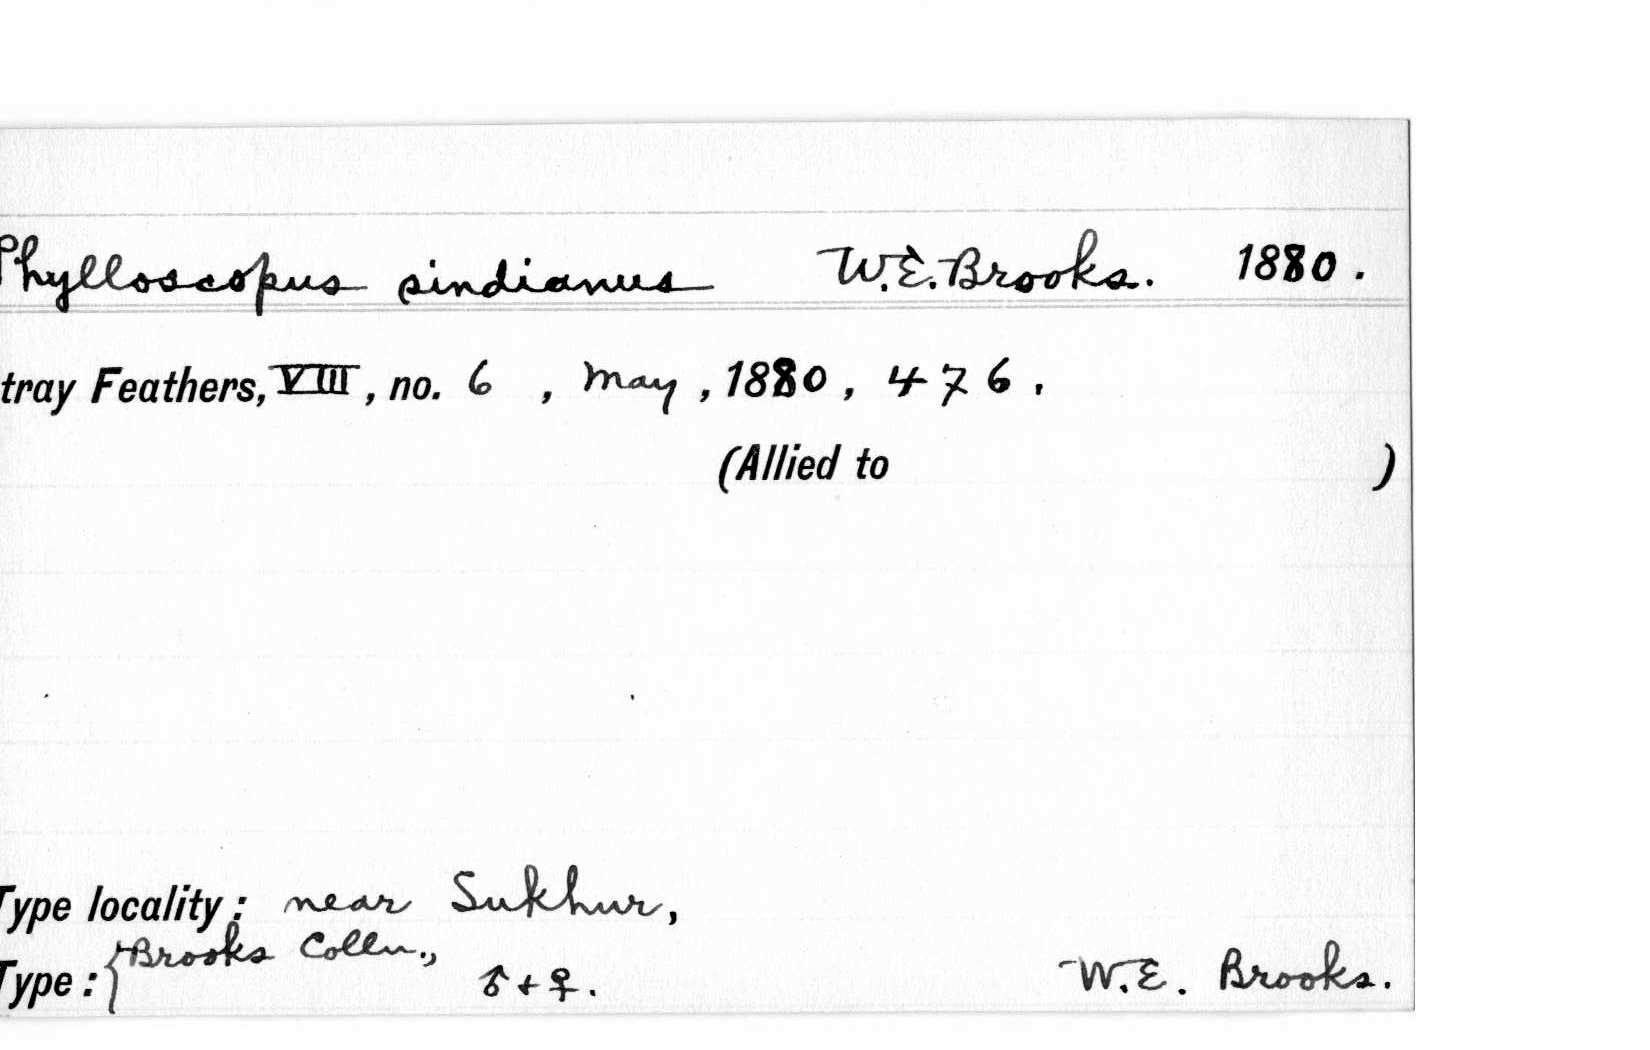 Phylloscopus sindianus W.E. Brooks. 1880.
tray Feathers, VIII, no. 6, May, 1880, 476.
(Allied to )
Type locality: near Sukhur,
Brooks Colln.,
Type: { ♂ + ♀. W.E. Brooks.